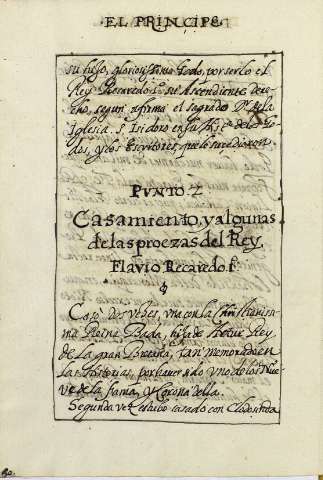 EL PRINCIPE
su hijo, gloriosissimo Godo, por ser lo el
Rey Recaredo 1º su Ascendiente dere
cho, segun afirma el sagrado Dr. de la
Iglesia S. Isidoro en su de los Go
dos, y los Escritores, que le sucedieron
PUNTO 2
Casamiento, y algunas
de las proezas del Rey,
Flavio Recaredo 1º
Casó Dos veses, una con la Christianissi
ma Reina Bada, hija de Artur Rey
de La gran Bretaña, tan memorado en
Las Historias, por haver sido uno de los Nue
ve de la fama, y Corona della.
Segunda vez estuvo casado con Clodosinda